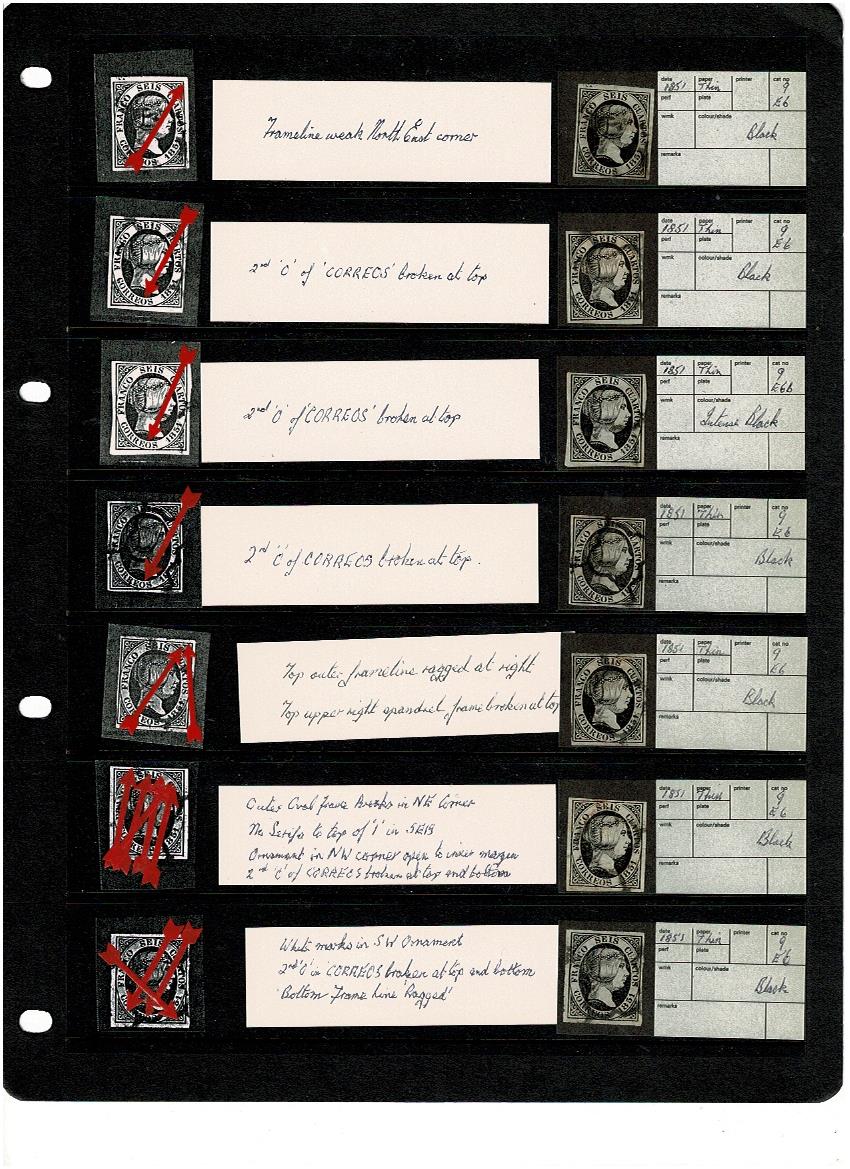 FRANCO SEIS CUARTOS
CORREOS 1851
Frameline weak North East corner
FRANCO SEIS CUARTOS
CORREOS 1851
date paper printer cat no
1851 Thin 9
perf plate E6
wmk colour/shade
Black
remarks
FRANCO SEIS CUARTOS
CORREOS 1851
2nd 'O' of 'CORREOS' broken at top
FRANCO SEIS CUARTOS
CORREOS 1851
date paper printer cat no
1851 Thin 9
perf plate E6
wmk colour/shade
Black
remarks
FRANCO SEIS CUARTOS
CORREOS 1851
2nd 'O' of 'CORREOS' broken at top
FRANCO SEIS CUARTOS
CORREOS 1851
date paper printer cat no
1851 Thin 9
perf plate E6b
wmk colour/shade
Intense Black
remarks
FRANCO SEIS
CORREOS
2nd 'O' of CORREOS broken at top.
FRANCO SEIS CUARTOS
CORREOS
date paper printer cat no
1851 Thin 9
perf plate E6
wmk colour/shade
Black
remarks
FRANCO SEIS
Top outer frameline ragged at right
Top upper right spandrel frame broken at top
FRANCO SEIS CUARTOS
CORREOS 1851
date paper printer cat no
1851 Thin 9
perf plate E6
wmk colour/shade
Black
remarks
SEIS
1851
Outer Oval Frame Breaks in NE Corner
No Serifs to top of 'I' in SEIS
Ornament in NW corner open to inner margin
2nd 'O' of CORREOS broken at top and bottom
FRANCO SEIS CUARTOS
CORREOS 1851
date paper printer cat no
1851 Thin 9
perf plate E6
wmk colour/shade
Black
remarks
FRANCO SEIS
White marks in SW Ornament
2nd 'O' in CORREOS broken at top and bottom
Bottom Frame Line 'Ragged'
FRANCO SEIS CUARTOS
CORREOS 1851
date paper printer cat no
1851 Thin 9
perf plate E6
wmk colour/shade
Black
remarks